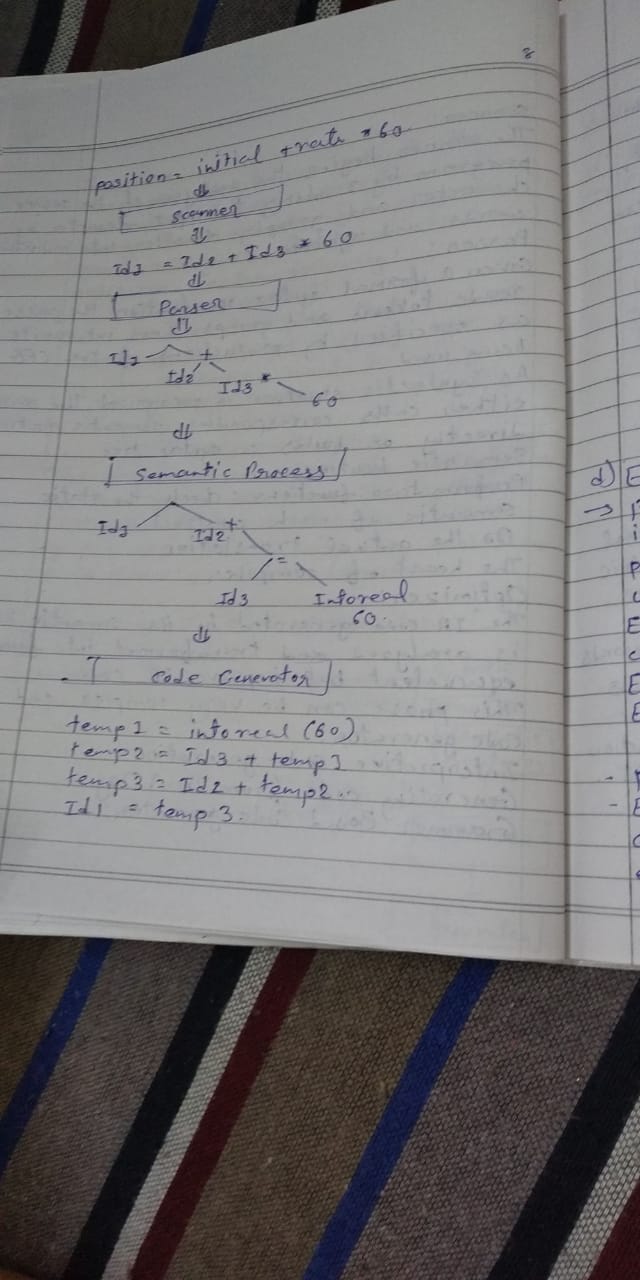 8
position = initial + rate * 60
Scanner
Id1 = Id2 + Id3 * 60
Parser
Id1 +
Id2 Id3 *
60
Semantic Process
Id1 Id2 +
=
Id3 Intoreal
60.
Code Generator
temp1 = intoreal (60)
temp2 = Id3 + temp1
temp3 = Id2 + temp2.
Id1 = temp3.
d) E